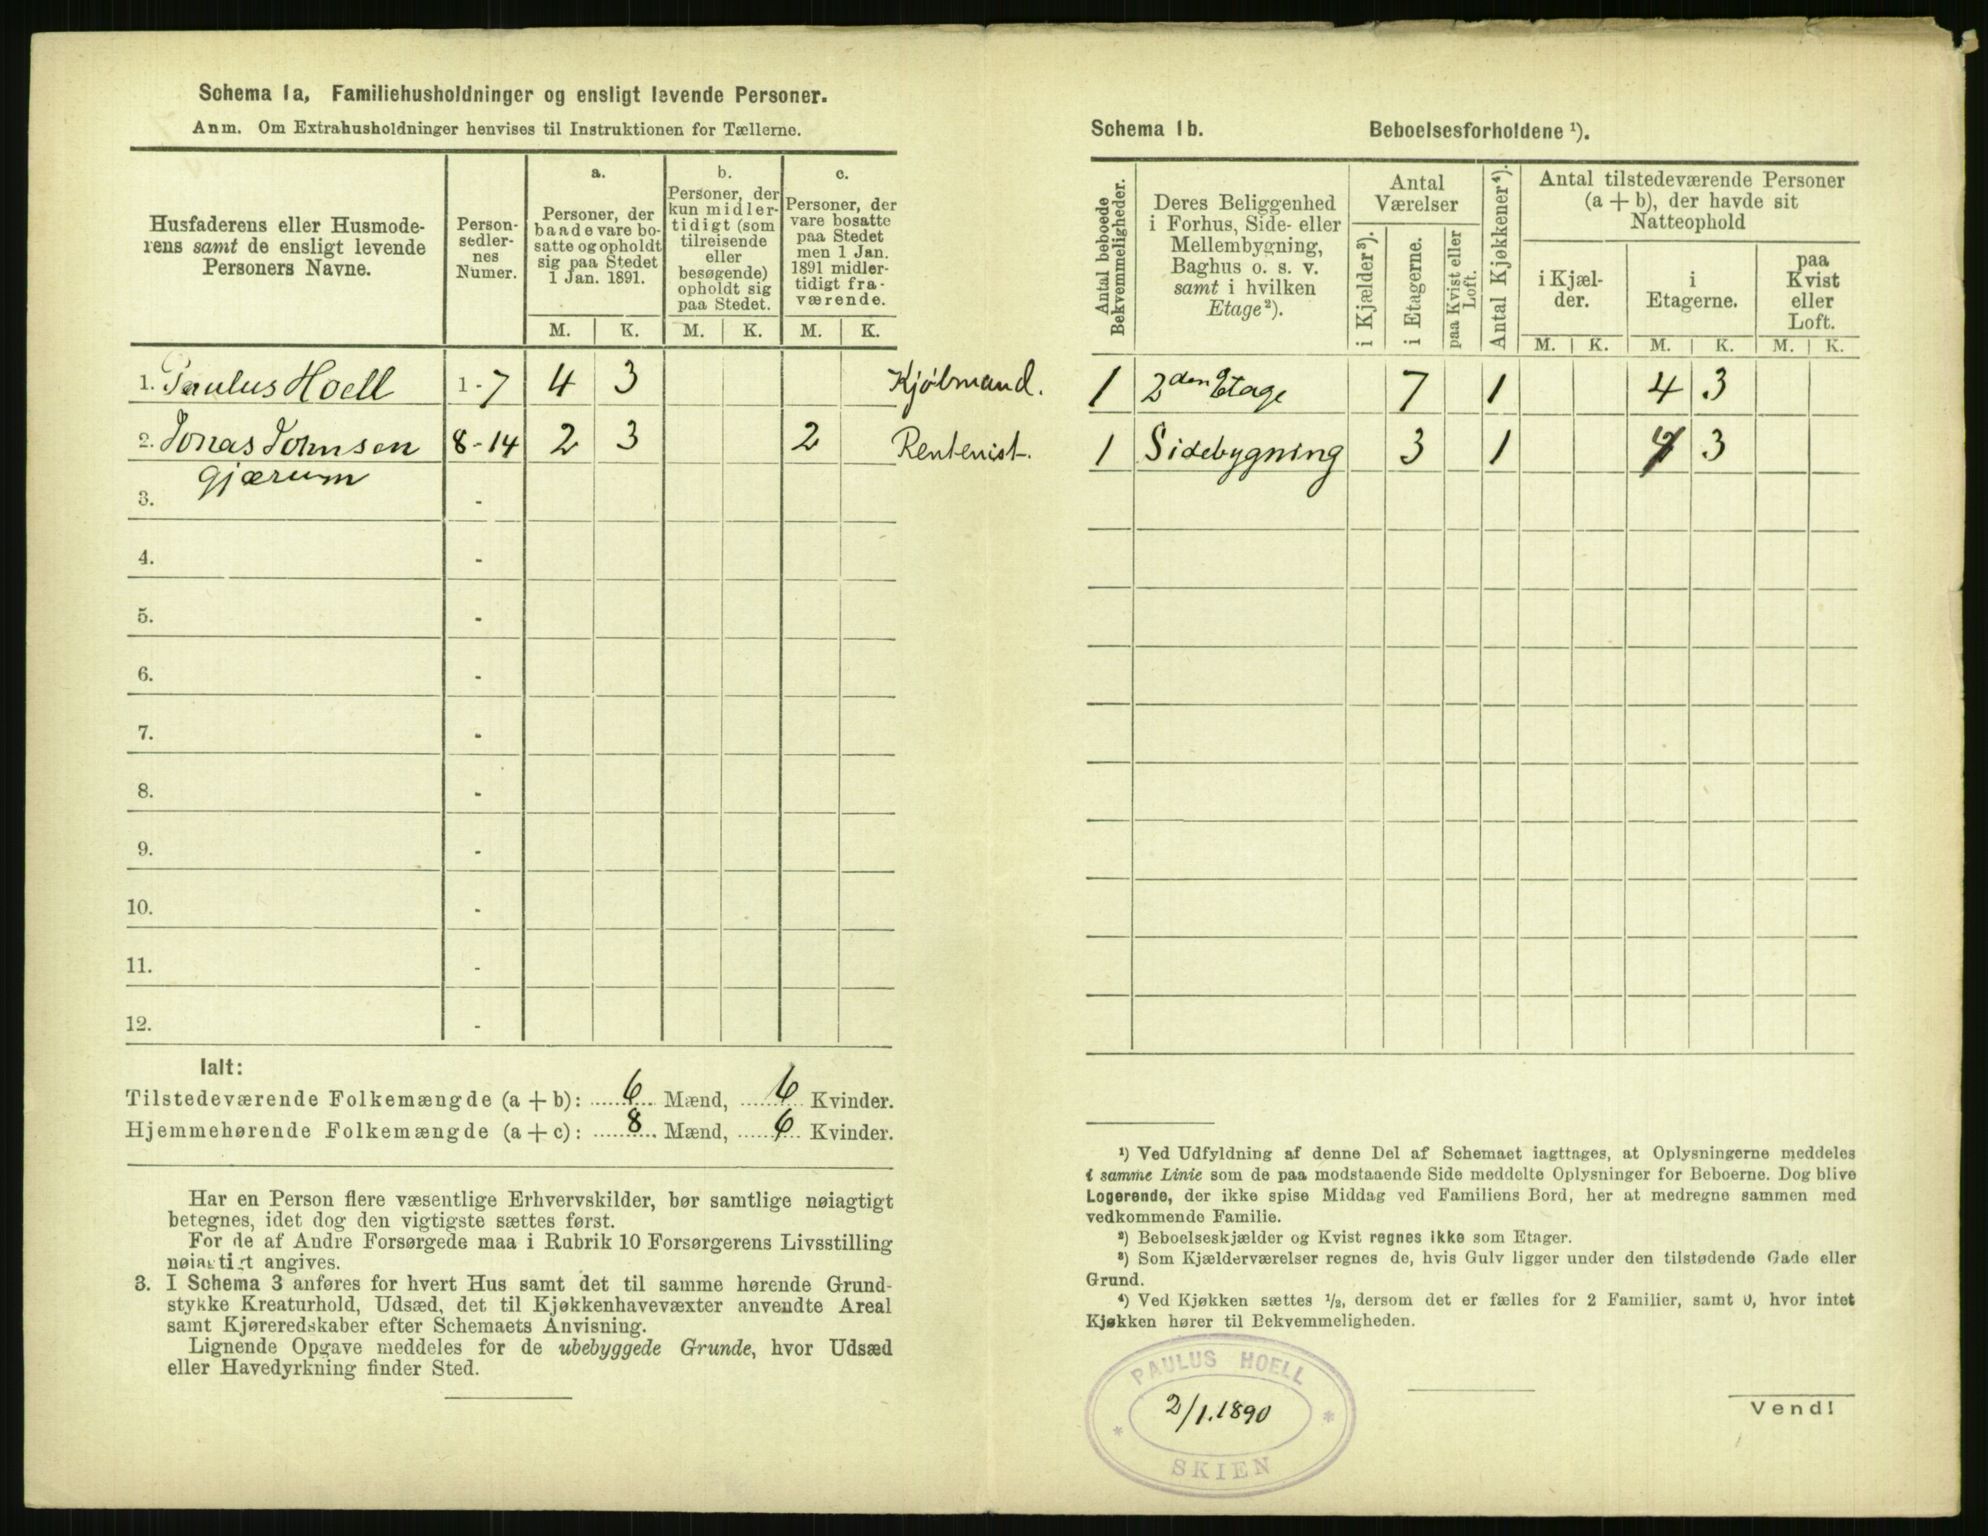 Schema 1a, Familiehusholdninger og ensligt levende Personer.
Anm. Om Extrahusholdninger henvises til Instruktionen for Tællerne.
Husfaderens eller Husmode-
rens samt de ensligt levende
Personers Navne.
Person-
sedler-
nes
Numer.
a.
Personer, der
baade vare bo-
satte og opholdt
sig paa Stedet
1 Jan. 1891.
b.
Personer, der
kun midler-
tidigt (som
tilreisende
eller
besøgende)
opholdt sig
paa Stedet.
c.
Personer, der
vare bosatte
paa Stedet
men 1 Jan.
1891 midler-
tidigt fra-
værende.
M. K. M. K. M. K.
1. Paulus Hoell 1 - 7 4 3 Kjøbmand.
2. Jonas Johnsen 8 - 14 2 3 2 Rentenist.
Gjærum
3. -
4. -
5. -
6. -
7. -
8. -
9. -
10. -
11. -
12. -
Ialt:
Tilstedeværende Folkemængde (a + b): 6 Mænd, 6 Kvinder.
Hjemmehørende Folkemængde (a + c): 8 Mænd, 6 Kvinder.
Har en Person flere væsentlige Erhvervskilder, bør samtlige nøiagtigt
betegnes, idet dog den vigtigste sættes først.
For de af Andre Forsørgede maa i Rubrik 10 Forsørgerens Livsstilling
nøiagtigt angives.
3. I Schema 3 anføres for hvert Hus samt det til samme hørende Grund-
stykke Kreaturhold, Udsæd, det til Kjøkkenhavevæxter anvendte Areal
samt Kjøreredskaber efter Schemaets Anvisning.
Lignende Opgave meddeles for de ubebyggede Grunde, hvor Udsæd
eller Havedyrkning finder Sted.
Schema 1b. Beboelsesforholdene ¹).
Antal beboede
Bekvemmeligheder.
Deres Beliggenhed
i Forhus, Side- eller
Mellembygning,
Baghus o. s. v.
samt i hvilken
Etage²).
Antal
Værelser
i Kjælder³).
i Etagerne.
paa Kvist eller
Loft.
Antal Kjøkkener⁴).
Antal tilstedeværende Personer
(a + b), der havde sit
Natteophold
i Kjæl-
der.
i
Etagerne.
paa
Kvist
eller
Loft.
M. K. M. K. M. K.
1 2den Etage 7 1 4 3
1 Sidebygning 3 1 3
¹) Ved Udfyldning af denne Del af Schemaet iagttages, at Oplysningerne meddeles
i samme Linie som de paa modstaaende Side meddelte Oplysninger for Beboerne. Dog blive
Logerende, der ikke spise Middag ved Familiens Bord, her at medregne sammen med
vedkommende Familie.
²) Beboelseskjælder og Kvist regnes ikke som Etager.
³) Som Kjælderværelser regnes de, hvis Gulv ligger under den tilstødende Gade eller
Grund.
⁴) Ved Kjøkken sættes ½, dersom det er fælles for 2 Familier, samt 0, hvor intet
Kjøkken hører til Bekvemmeligheden.
PAULUS HOELL
2/1.1890
* *
SKIEN
Vend!